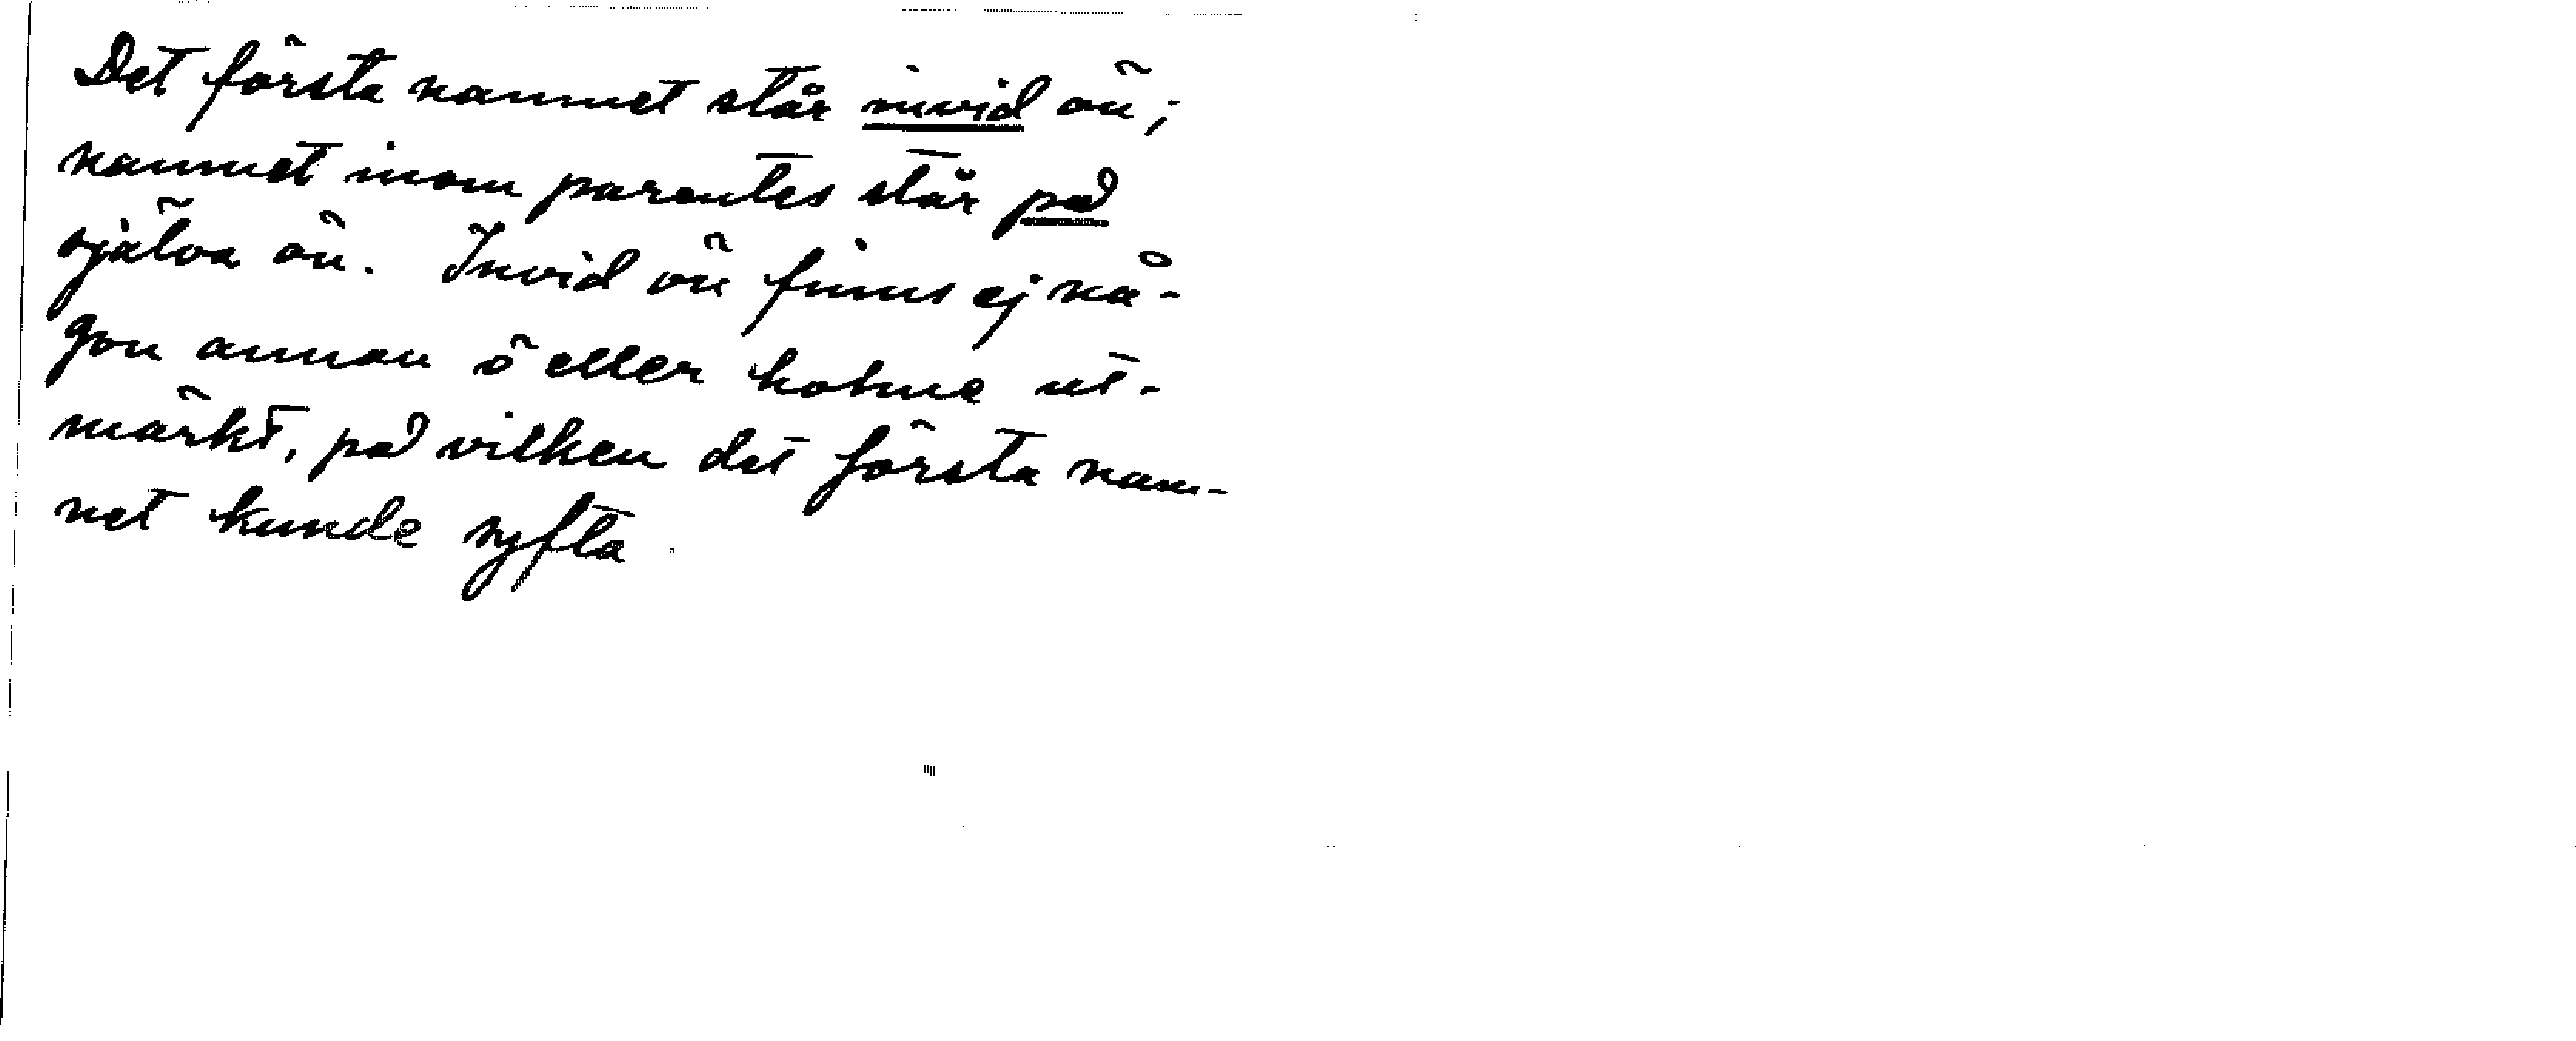 Det första namnet står invid ön;
namnet inom parentes står på
själva ön. Invid ön finns ej nå-
gon annan ö eller holme ut-
märkt, på vilken det första nam-
net kunde syfta.